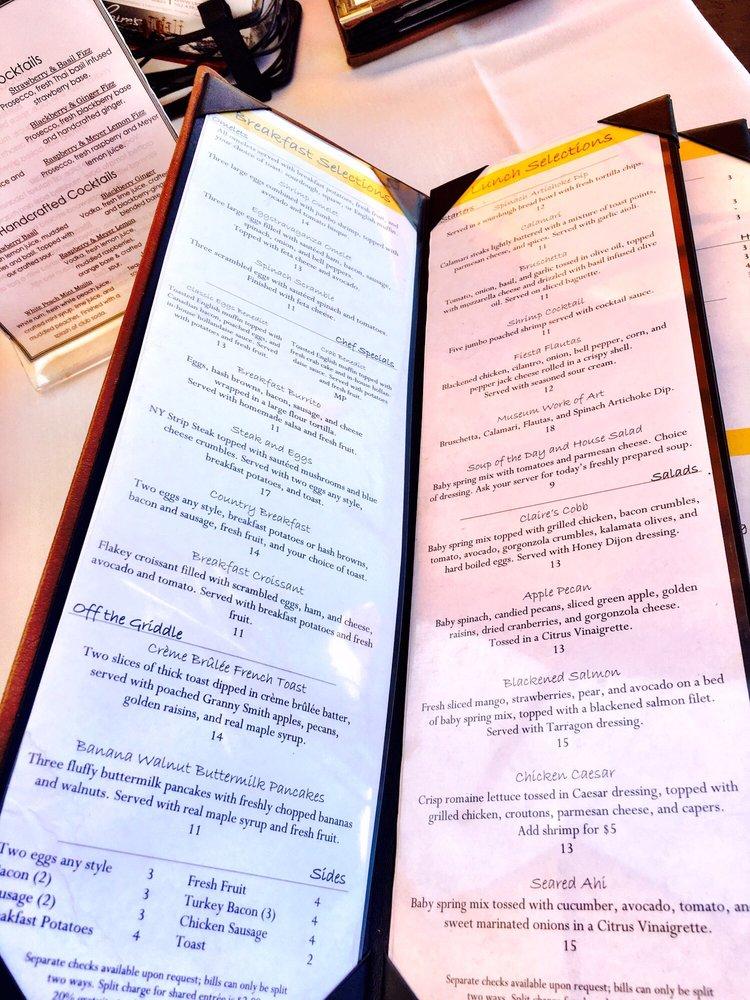 ocktails
Strawberry & Basil Fizz
Prosecco, fresh Thai basil infused
strawberry base.
Blackberry & Ginger Fizz
Prosecco, fresh blackberry base
and handcrafted ginger.
Raspberry & Meyer Lemon Fizz
Prosecco, fresh raspberry and Meyer
lemon juice.
Handcrafted Cocktails
Blackberry Ginger
Vodka, fresh lime juice, crafted
and blackberry ginger
blended base
Raspberry & Meyer Lemon
muddled raspberries.
White Peach Mint Mojito
white rum, fresh white peach juice, and
crafted mint syrup, fresh lime juice, and
muddled peaches. Finished with a
splash of club soda.
Breakfast Selections
Omelets
All omelets served with breakfast potatoes, fresh fruit, and
your choice of toast, sourdough, squaw, or English muffin.
Shrimp Omelet
Three large eggs combined with jumbo shrimp, topped with
avocado and tomato bisque
14
Eggstravaganza Omelet
Three large eggs filled with sautéed ham, bacon, sausage,
spinach, onion, and bell peppers.
Topped with feta cheese and avocado.
13
Spinach Scramble
Three scrambled eggs with sautéed spinach and tomatoes.
Finished with feta cheese.
11
Chef Specials
Classic Eggs Benedict
Toasted English muffin topped with
Canadian bacon, poached eggs, and
in-home hollandaise sauce. Served
with potatoes and fresh fruit.
13
Crab Benedict
Toasted English muffin topped with
fresh crab cake and in-home hollan-
daise sauce. Served with potatoes
and fresh fruit.
MP
Breakfast Burrito
Eggs, hash browns, bacon, sausage, and cheese
wrapped in a large flour tortilla.
Served with homemade salsa and fresh fruit.
11
Steak and Eggs
NY Strip Steak topped with sautéed mushrooms and blue
cheese crumbles. Served with two eggs any style,
breakfast potatoes, and toast.
17
Country Breakfast
Two eggs any style, breakfast potatoes or hash browns,
bacon and sausage, fresh fruit, and your choice of toast.
14
Breakfast Croissant
Flakey croissant filled with scrambled eggs, ham, and cheese,
avocado and tomato. Served with breakfast potatoes and fresh
fruit.
11
Off the Griddle
Crème Brûlée French Toast
Two slices of thick toast dipped in crème brûlée batter,
served with poached Granny Smith apples, pecans,
golden raisins, and real maple syrup.
14
Banana Walnut Buttermilk Pancakes
Three fluffy buttermilk pancakes with freshly chopped bananas
and walnuts. Served with real maple syrup and fresh fruit.
11
Sides
Two eggs any style 3 Fresh Fruit 4
acon (2) 3 Turkey Bacon (3) 4
usage (2) 3 Chicken Sausage 4
akfast Potatoes 4 Toast 2
Separate checks available upon request; bills can only be split
two ways. Split charge for shared entrée is
Lunch Selections
Starters
Spinach Artichoke Dip
Served in a sourdough bread bowl with fresh tortilla chips.
12
Calamari
Calamari steaks lightly battered with a mixture of toast points,
parmesan cheese, and spices. Served with garlic aioli.
11
Bruschetta
Tomato, onion, basil, and garlic tossed in olive oil, topped
with mozzarella cheese and drizzled with basil infused olive
oil. Served on sliced baguette.
11
Shrimp Cocktail
Five jumbo poached shrimp served with cocktail sauce.
11
Fiesta Flautas
Blackened chicken, cilantro, onion, bell pepper, corn, and
pepper jack cheese rolled in a crispy shell.
Served with seasoned sour cream.
12
Museum Work of Art
Bruschetta, Calamari, Flautas, and Spinach Artichoke Dip.
18
Soup of the Day and House Salad
Baby spring mix with tomatoes and parmesan cheese. Choice
of dressing. Ask your server for today's freshly prepared soup.
9
Salads
Claire's Cobb
Baby spring mix topped with grilled chicken, bacon crumbles,
tomato, avocado, gorgonzola crumbles, kalamata olives, and
hard boiled eggs. Served with Honey Dijon dressing.
13
Apple Pecan
Baby spinach, candied pecans, sliced green apple, golden
raisins, dried cranberries, and gorgonzola cheese.
Tossed in a Citrus Vinaigrette.
13
Blackened Salmon
Fresh sliced mango, strawberries, pear, and avocado on a bed
of baby spring mix, topped with a blackened salmon filet.
Served with Tarragon dressing.
15
Chicken Caesar
Crisp romaine lettuce tossed in Caesar dressing, topped with
grilled chicken, croutons, parmesan cheese, and capers.
Add shrimp for $5
13
Seared Ahi
Baby spring mix tossed with cucumber, avocado, tomato, an
sweet marinated onions in a Citrus Vinaigrette.
15
Separate checks available upon request; bills can only be split
two ways. Split charge for shared entrée is